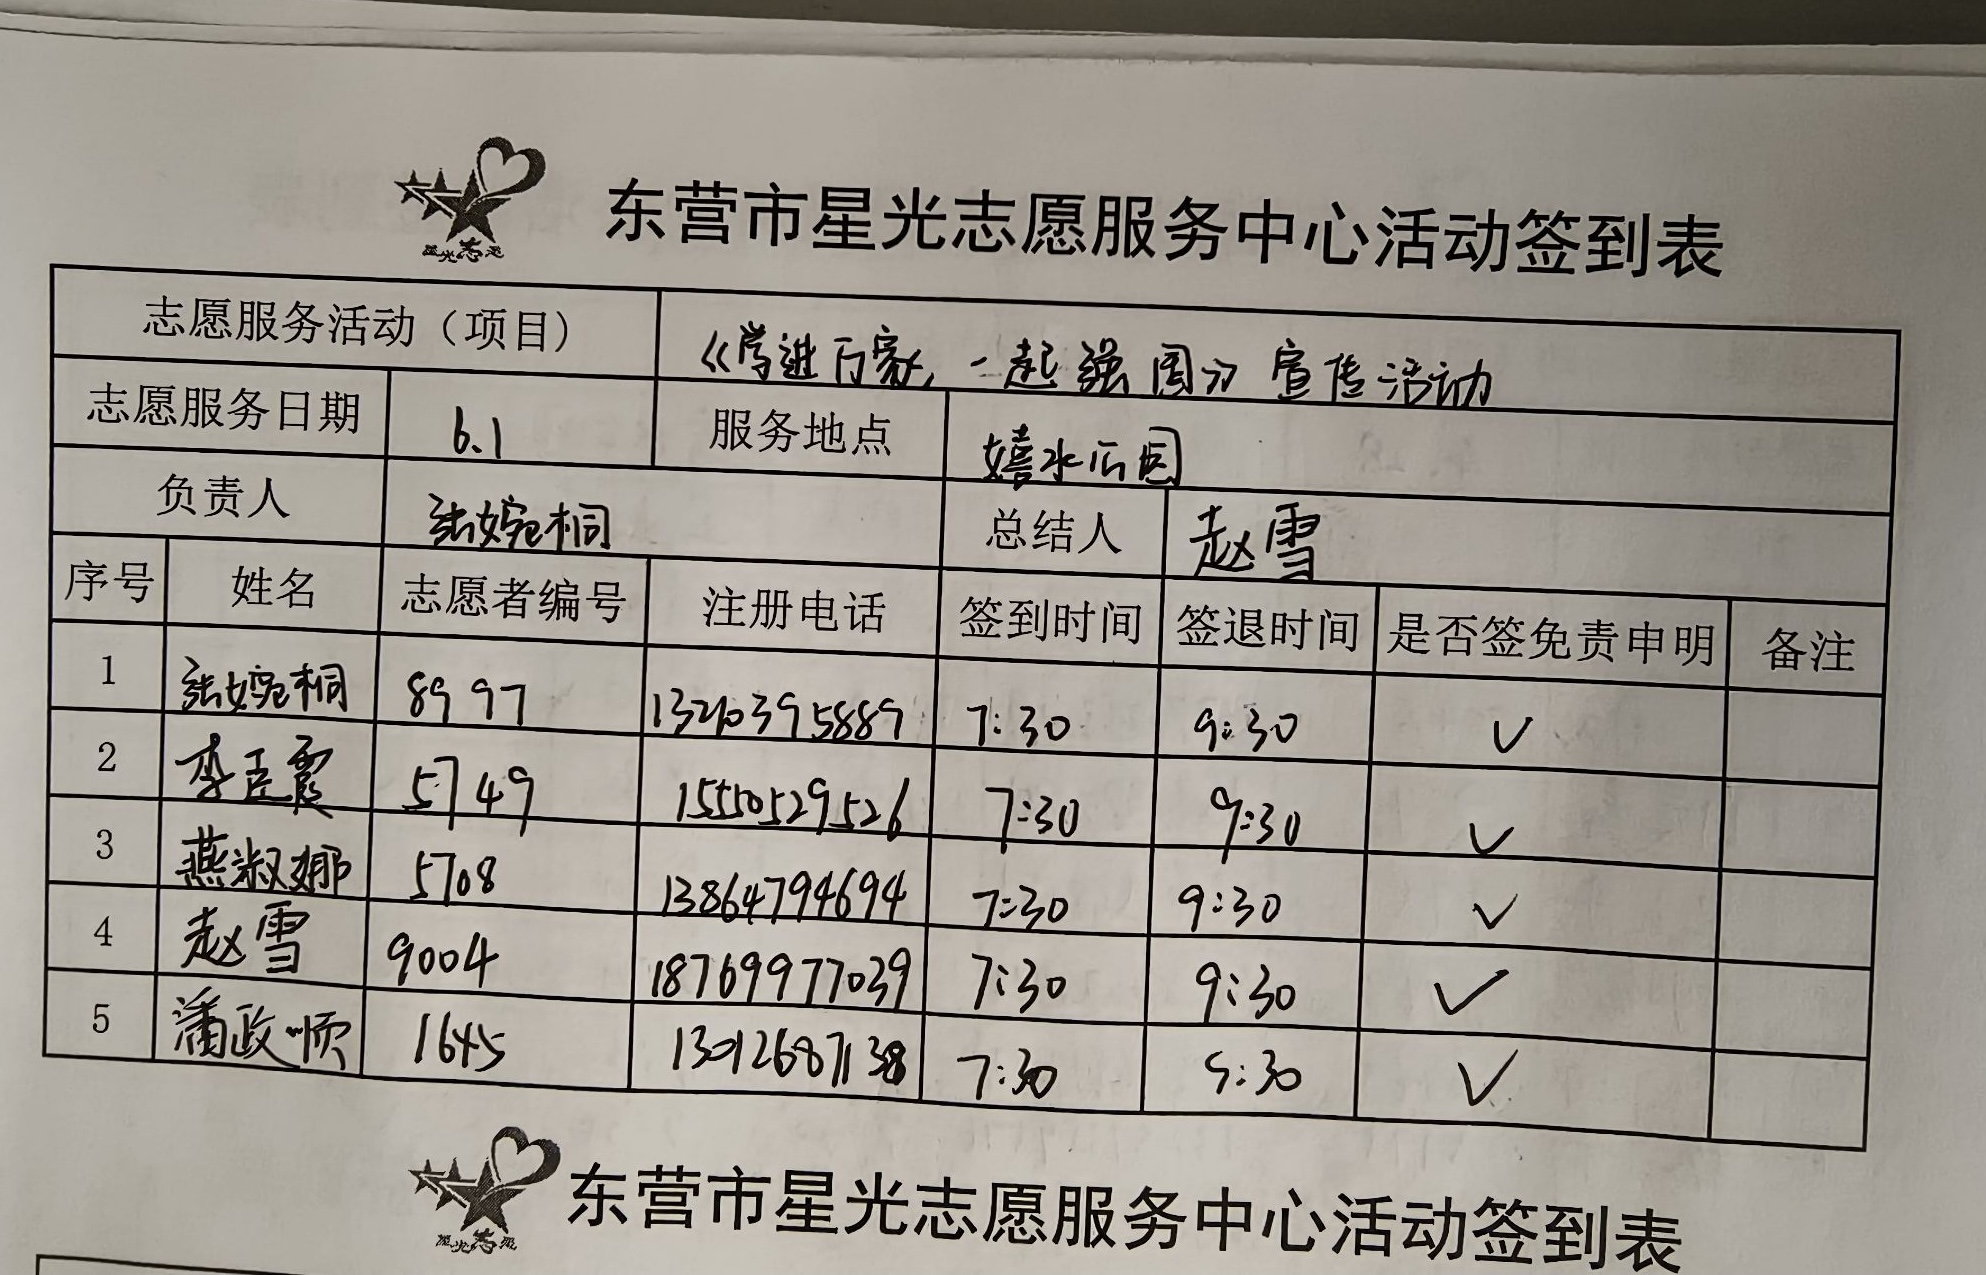 星光志愿
东营市星光志愿服务中心活动签到表
志愿服务活动（项目） 《学进万家，一起强国》宣传活动
志愿服务日期 6.1 服务地点 嬉水公园
负责人 张婉桐 总结人 赵雪
序号 姓名 志愿者编号 注册电话 签到时间 签退时间 是否签免责申明 备注
1 张婉桐 8997 13210395889 7:30 9:30 ✓
2 李臣霞 5749 15550529526 7:30 9:30 ✓
3 燕淑娜 5708 13864794694 7:30 9:30 ✓
4 赵雪 9004 18769977039 7:30 9:30 ✓
5 潘政顺 1645 13012687138 7:30 9:30 ✓
星光志愿
东营市星光志愿服务中心活动签到表